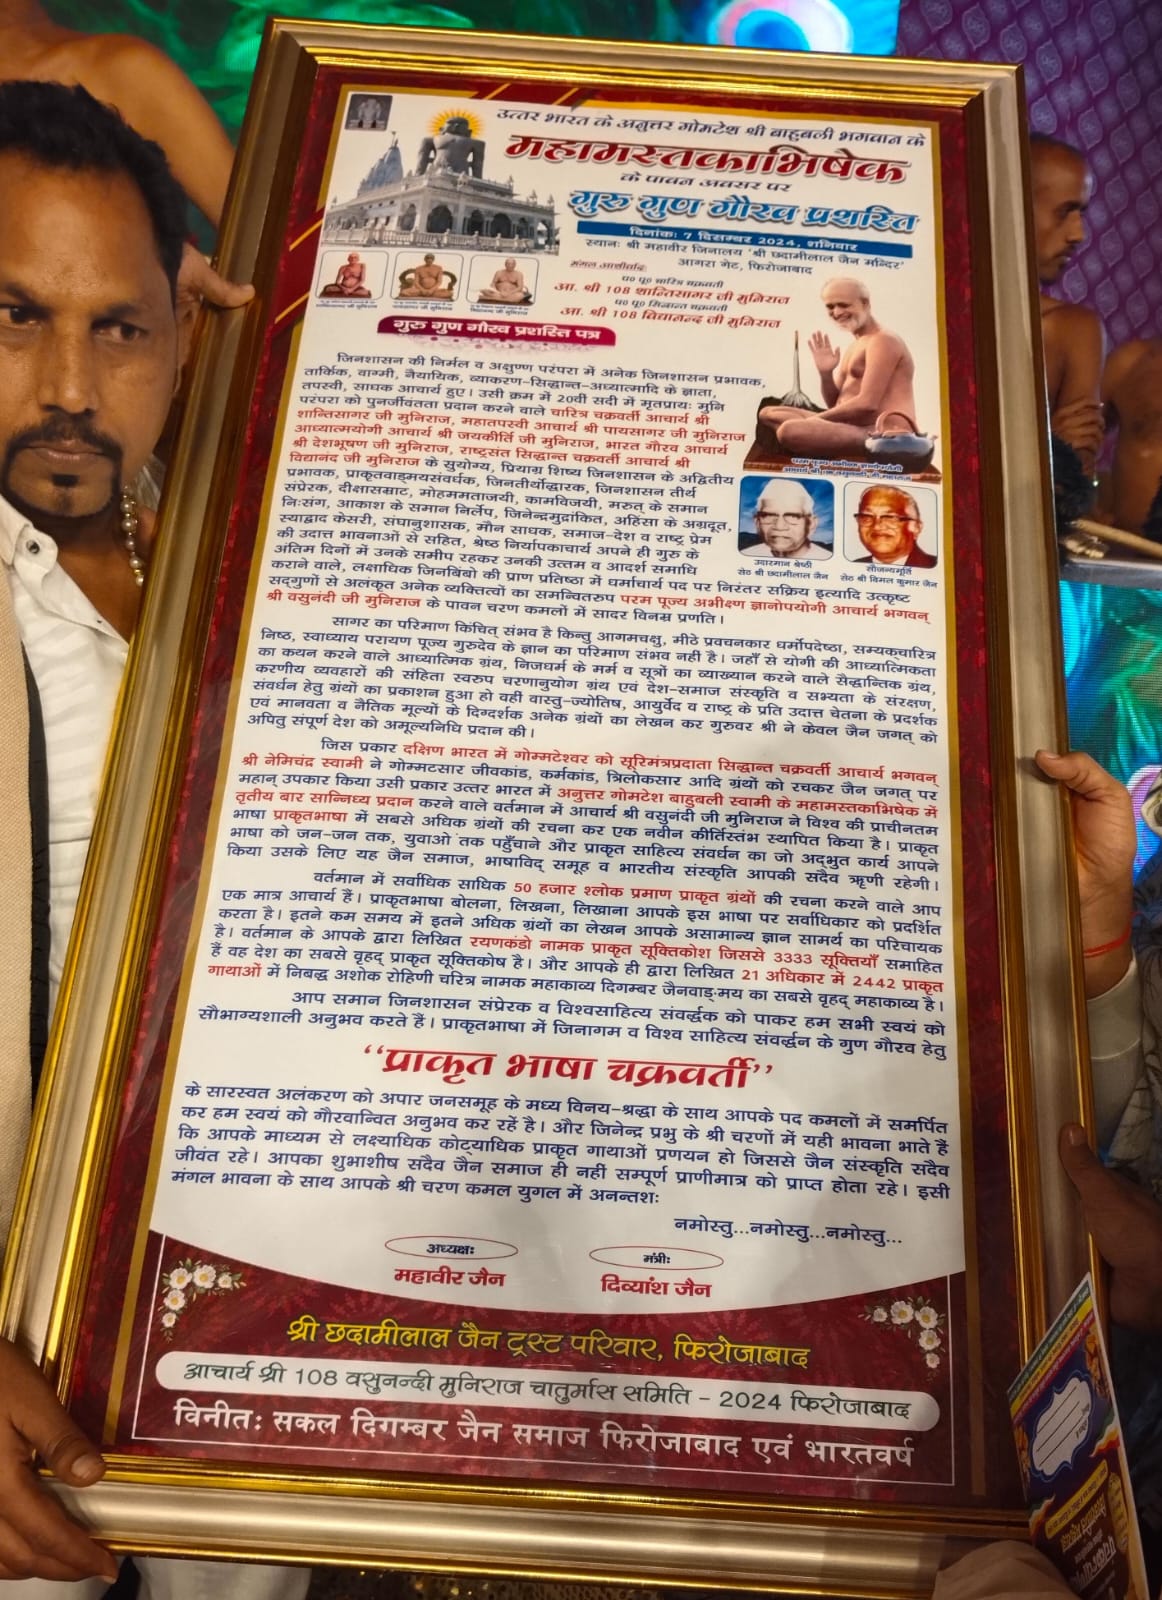 उत्तर भारत के अनुत्तर गोमटेश श्री बाहुबली भगवान के
महामस्तकाभिषेक
के पावन अवसर पर
गुरु गुण गौरव प्रशस्ति
दिनांक: 7 दिसम्बर 2024, शनिवार
स्थान: श्री महावीर जिनालय 'श्री छदामीलाल जैन मन्दिर'
आगरा गेट, फिरोजाबाद
मंगल आशीर्वाद:
प० पू० चारित्र चक्रवर्ती
आ. श्री 108 शान्तिसागर जी मुनिराज
प० पू० सिद्धान्त चक्रवर्ती
आ. श्री 108 विद्यानन्द जी मुनिराज
गुरु गुण गौरव प्रशस्ति पत्र
जिनशासन की निर्मल व अक्षुण्ण परंपरा में अनेक जिनशासन प्रभावक,
तार्किक, वाग्मी, नैयायिक, व्याकरण-सिद्धान्त-अध्यात्मादि के ज्ञाता,
तपस्वी, साधक आचार्य हुए। उसी क्रम में 20वीं सदी में मृतप्रायः मुनि
परंपरा को पुनर्जीवंतता प्रदान करने वाले चारित्र चक्रवर्ती आचार्य श्री
शान्तिसागर जी मुनिराज, महातपस्वी आचार्य श्री पायसागर जी मुनिराज
आध्यात्मयोगी आचार्य श्री जयकीर्ति जी मुनिराज, भारत गौरव आचार्य
श्री देशभूषण जी मुनिराज, राष्ट्रसंत सिद्धान्त चक्रवर्ती आचार्य श्री
विद्यानंद जी मुनिराज के सुयोग्य, प्रियाग्र शिष्य जिनशासन के अद्वितीय
प्रभावक, प्राकृतवाड्मयसंवर्धक, जिनतीर्थोद्धारक, जिनशासन तीर्थ
संप्रेरक, दीक्षासम्राट, मोहममताजयी, कामविजयी, मरुत् के समान
निःसंग, आकाश के समान निर्लेप, जिनेन्द्रमुद्रांकित, अहिंसा के अग्रदूत,
स्याद्वाद केसरी, संघानुशासक, मौन साधक, समाज-देश व राष्ट्र प्रेम
की उदात्त भावनाओं से सहित, श्रेष्ठ निर्यापकाचार्य अपने ही गुरु के
अंतिम दिनों में उनके समीप रहकर उनकी उत्तम व आदर्श समाधि
कराने वाले, लक्षाधिक जिनबिंबो की प्राण प्रतिष्ठा में धर्माचार्य पद पर निरंतर सक्रिय इत्यादि उत्कृष्ट
सद्गुणों से अलंकृत अनेक व्यक्तित्वों का समन्वितरुप परम पूज्य अभीक्ष्ण ज्ञानोपयोगी आचार्य भगवन्
श्री वसुनंदी जी मुनिराज के पावन चरण कमलों में सादर विनम्र प्रणति।
उदारमान श्रेष्ठी
सेठ श्री छदामीलाल जैन
सौजन्यमूर्ति
सेठ श्री विमल कुमार जैन
सागर का परिमाण किंचित् संभव है किन्तु आगमचक्षु, मीठे प्रवचनकार धर्मोपदेष्ठा, सम्यक्चारित्र
निष्ठ, स्वाध्याय परायण पूज्य गुरुदेव के ज्ञान का परिमाण संभव नहीं है। जहाँ से योगी की आध्यात्मिकता
का कथन करने वाले आध्यात्मिक ग्रंथ, निजधर्म के मर्म व सूत्रों का व्याख्यान करने वाले सैद्धान्तिक ग्रंथ,
करणीय व्यवहारों की संहिता स्वरुप चरणानुयोग ग्रंथ एवं देश-समाज संस्कृति व सभ्यता के संरक्षण,
संवर्धन हेतु ग्रंथों का प्रकाशन हुआ हो वहीं वास्तु-ज्योतिष, आयुर्वेद व राष्ट्र के प्रति उदात्त चेतना के प्रदर्शक
एवं मानवता व नैतिक मूल्यों के दिग्दर्शक अनेक ग्रंथों का लेखन कर गुरुवर श्री ने केवल जैन जगत् को
अपितु संपूर्ण देश को अमूल्यनिधि प्रदान की।
जिस प्रकार दक्षिण भारत में गोम्मटेश्वर को सूरिमंत्रप्रदाता सिद्धान्त चक्रवर्ती आचार्य भगवन्
श्री नेमिचंद्र स्वामी ने गोम्मटसार जीवकांड, कर्मकांड, त्रिलोकसार आदि ग्रंथों को रचकर जैन जगत् पर
महान् उपकार किया उसी प्रकार उत्तर भारत में अनुत्तर गोमटेश बाहुबली स्वामी के महामस्तकाभिषेक में
तृतीय बार सान्निध्य प्रदान करने वाले वर्तमान में आचार्य श्री वसुनंदी जी मुनिराज ने विश्व की प्राचीनतम
भाषा प्राकृतभाषा में सबसे अधिक ग्रंथों की रचना कर एक नवीन कीर्तिस्तंभ स्थापित किया है। प्राकृत
भाषा को जन-जन तक, युवाओ तक पहुँचाने और प्राकृत साहित्य संवर्धन का जो अद्भुत कार्य आपने
किया उसके लिए यह जैन समाज, भाषाविद् समूह व भारतीय संस्कृति आपकी सदैव ऋणी रहेगी।
वर्तमान में सर्वाधिक साधिक 50 हजार श्लोक प्रमाण प्राकृत ग्रंथों की रचना करने वाले आप
एक मात्र आचार्य हैं। प्राकृतभाषा बोलना, लिखना, लिखाना आपके इस भाषा पर सर्वाधिकार को प्रदर्शित
करता है। इतने कम समय में इतने अधिक ग्रंथों का लेखन आपके असामान्य ज्ञान सामर्थ का परिचायक
है। वर्तमान के आपके द्वारा लिखित रयणकंडो नामक प्राकृत सूक्तिकोश जिससे 3333 सूक्तियाँ समाहित
हैं वह देश का सबसे वृहद् प्राकृत सूक्तिकोष है। और आपके ही द्वारा लिखित 21 अधिकार में 2442 प्राकृत
गाथाओं में निबद्ध अशोक रोहिणी चरित्र नामक महाकाव्य दिगम्बर जैनवाड्‌मय का सबसे वृहद् महाकाव्य है।
आप समान जिनशासन संप्रेरक व विश्वसाहित्य संवर्द्धक को पाकर हम सभी स्वयं को
सौभाग्यशाली अनुभव करते हैं। प्राकृतभाषा में जिनागम व विश्व साहित्य संवर्द्धन के गुण गौरव हेतु
"प्राकृत भाषा चक्रवर्ती"
के सारस्वत अलंकरण को अपार जनसमूह के मध्य विनय-श्रद्धा के साथ आपके पद कमलों में समर्पित
कर हम स्वयं को गौरवान्वित अनुभव कर रहें है। और जिनेन्द्र प्रभु के श्री चरणों में यही भावना भाते हैं
कि आपके माध्यम से लक्ष्याधिक कोट्याधिक प्राकृत गाथाओं प्रणयन हो जिससे जैन संस्कृति सदैव
जीवंत रहे। आपका शुभाशीष सदैव जैन समाज ही नहीं सम्पूर्ण प्राणीमात्र को प्राप्त होता रहे। इसी
मंगल भावना के साथ आपके श्री चरण कमल युगल में अनन्तशः
नमोस्तु...नमोस्तु...नमोस्तु...
अध्यक्षः
महावीर जैन
मंत्रीः
दिव्यांश जैन
श्री छदामीलाल जैन ट्रस्ट परिवार, फिरोजाबाद
आचार्य श्री 108 वसुनन्दी मुनिराज चातुर्मास समिति - 2024 फिरोजाबाद
विनीतः सकल दिगम्बर जैन समाज फिरोजाबाद एवं भारतवर्ष